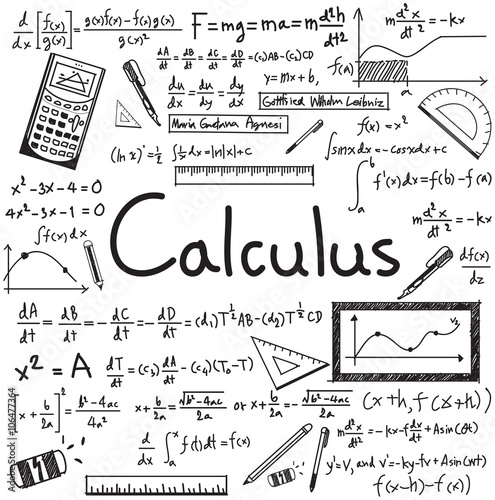 d/dx [f(x)/g(x)] = g(x)f(x) - f(x)g(x) / g(x)²
F = mg = ma = m d²h/dt2
m d²x/dt² = -kx
dA/dt = dB/dt = dC/dt = dD/dt = (c₁)AB-(c₂)CD
y = mx + b,
f(a)
a
du/dx = du/dy = dy/dx
Gottfied Wilhalm Leibniz
Maria Gaetana Agnesi
f(x) = x²
(ln x)' = 1/2
∫1/x dx = |n|x| + c
∫sinxdx = -cosxdx + c
∫ₐᵇ f'(x)dx = f(b) - f(a)
x² - 3x - 4 = 0
4x² - 3x - 1 = 0
∫f(x)dx
Calculus
m d²x/dt² = -kx
df(x)/dz
dA/dt = dB/dt = - dC/dt = - dD/dt = (d₁)T^1/2 AB - (d₂)T^1/2 CD
V₂
x² = A
dT/dt = (c₃) dA/dt - (c₄)(T₀-T)
[x + b/2a]² = b² - 4ac / 4a²
x + b/2a = √b² - 4ac / 2a or x + b/2a = -√b² - 4ac / 2a
(x+h, f(x+h))
d/dx ∫ₐˣ f(t)dt = f(x)
m d²x/dt² = -kx - f dx/dt + A sin(ωt)
y' = V, and V' = -ky - fv + A sin(t)
f(x-h) - f(x))
Adobe Stock
106477364